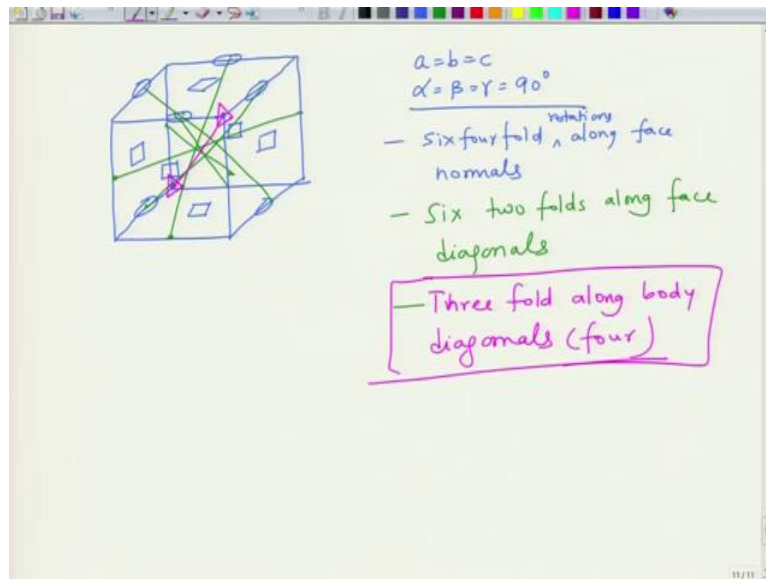 a = b = c
α = β = γ = 90°
rotations
- Six four fold ^ along face
normals
- Six two folds along face
diagonals
- Three fold along body
diagonals (four)
11/11